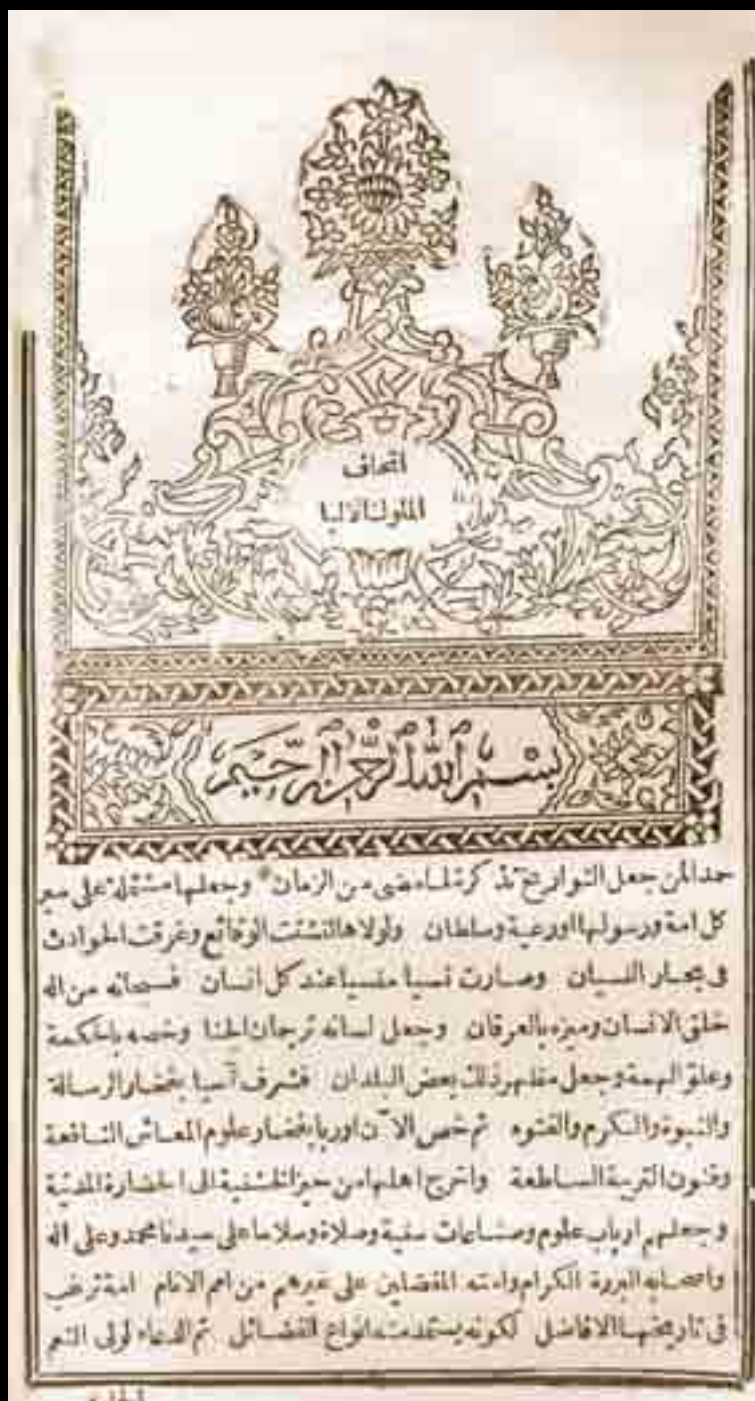 اتحاف
الملوك الالبا
بسم الله الرحمن الرحيم
حمدا لمن جعل التواريخ تذكرة لما مضى من الزمان * وجعلها مشتملة على سير
كل امة ورسولها اورعية وسلطان ولولاها لتشتت الوقائع وغرقت الحوادث
فى بحار النسيان وصارت نسيا منسيا عند كل انسان فسبحانه من اله
خلق الانسان وميزه بالعرفان وجعل لسانه ترجمان الجنا وخصه بالحكمة
وعلو الهمة وجعل مظهر ذلك بعض البلدان فشرف آسيا بفخار الرسالة
والنبوة والكرم والفتوه ثم خص الآن اوربا بفخار علوم المعاش النافعة
وفنون التربية الساطعة واخرج اهلها من حيز الخشنية الى الحضارة المدنية
وجعلهم ارباب علوم وصناعات سنية وصلاة وسلاما على سيدنا محمد وعلى اله
واصحابه البررة الكرام وامته المفضلين على غيرهم من امم الانام امة ترغب
فى تاريخها الافاضل لكونه يستمد منه انواع الفضائل ثم الدعاء لولى النعم